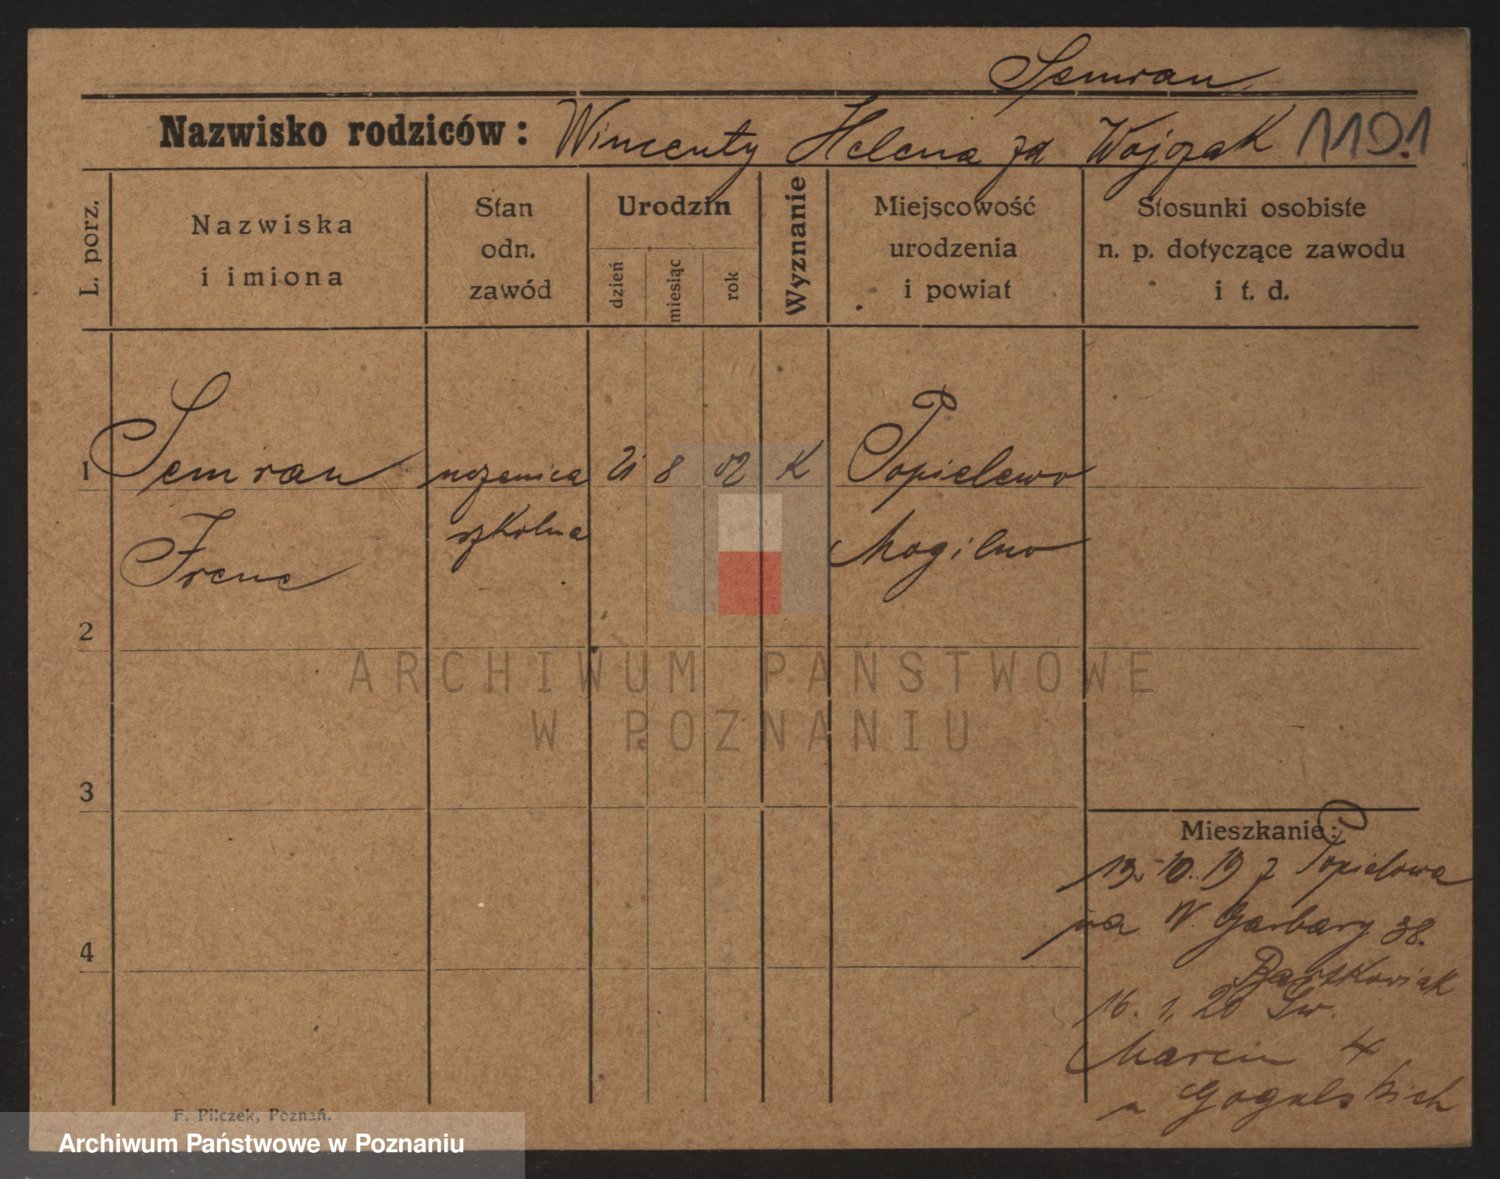 Semrau
Nazwisko rodziców: Wincenty Helena zd Wojczak 1101
L. porz.
Nazwiska
i imiona
Stan
odn.
zawód
Urodzin
dzień
miesiąc
rok
Wyznanie
Miejscowość
urodzenia
i powiat
Stosunki osobiste
n. p. dotyczące zawodu
i t. d.
1 Semrau uczenica 21 8 02 K Popielewo
szkolna Mogilno
Irena
2
ARCHIWUM PAŃSTWOWE
W POZNANIU
3
Mieszkanie:
19.10.19 z Popielewa
na W. Garbary 38.
4
Bartkowiak
16. 1. 20 Św.
Marcin 4
u Gogulskich
F. Pilczek, Poznań.
Archiwum Państwowe w Poznaniu